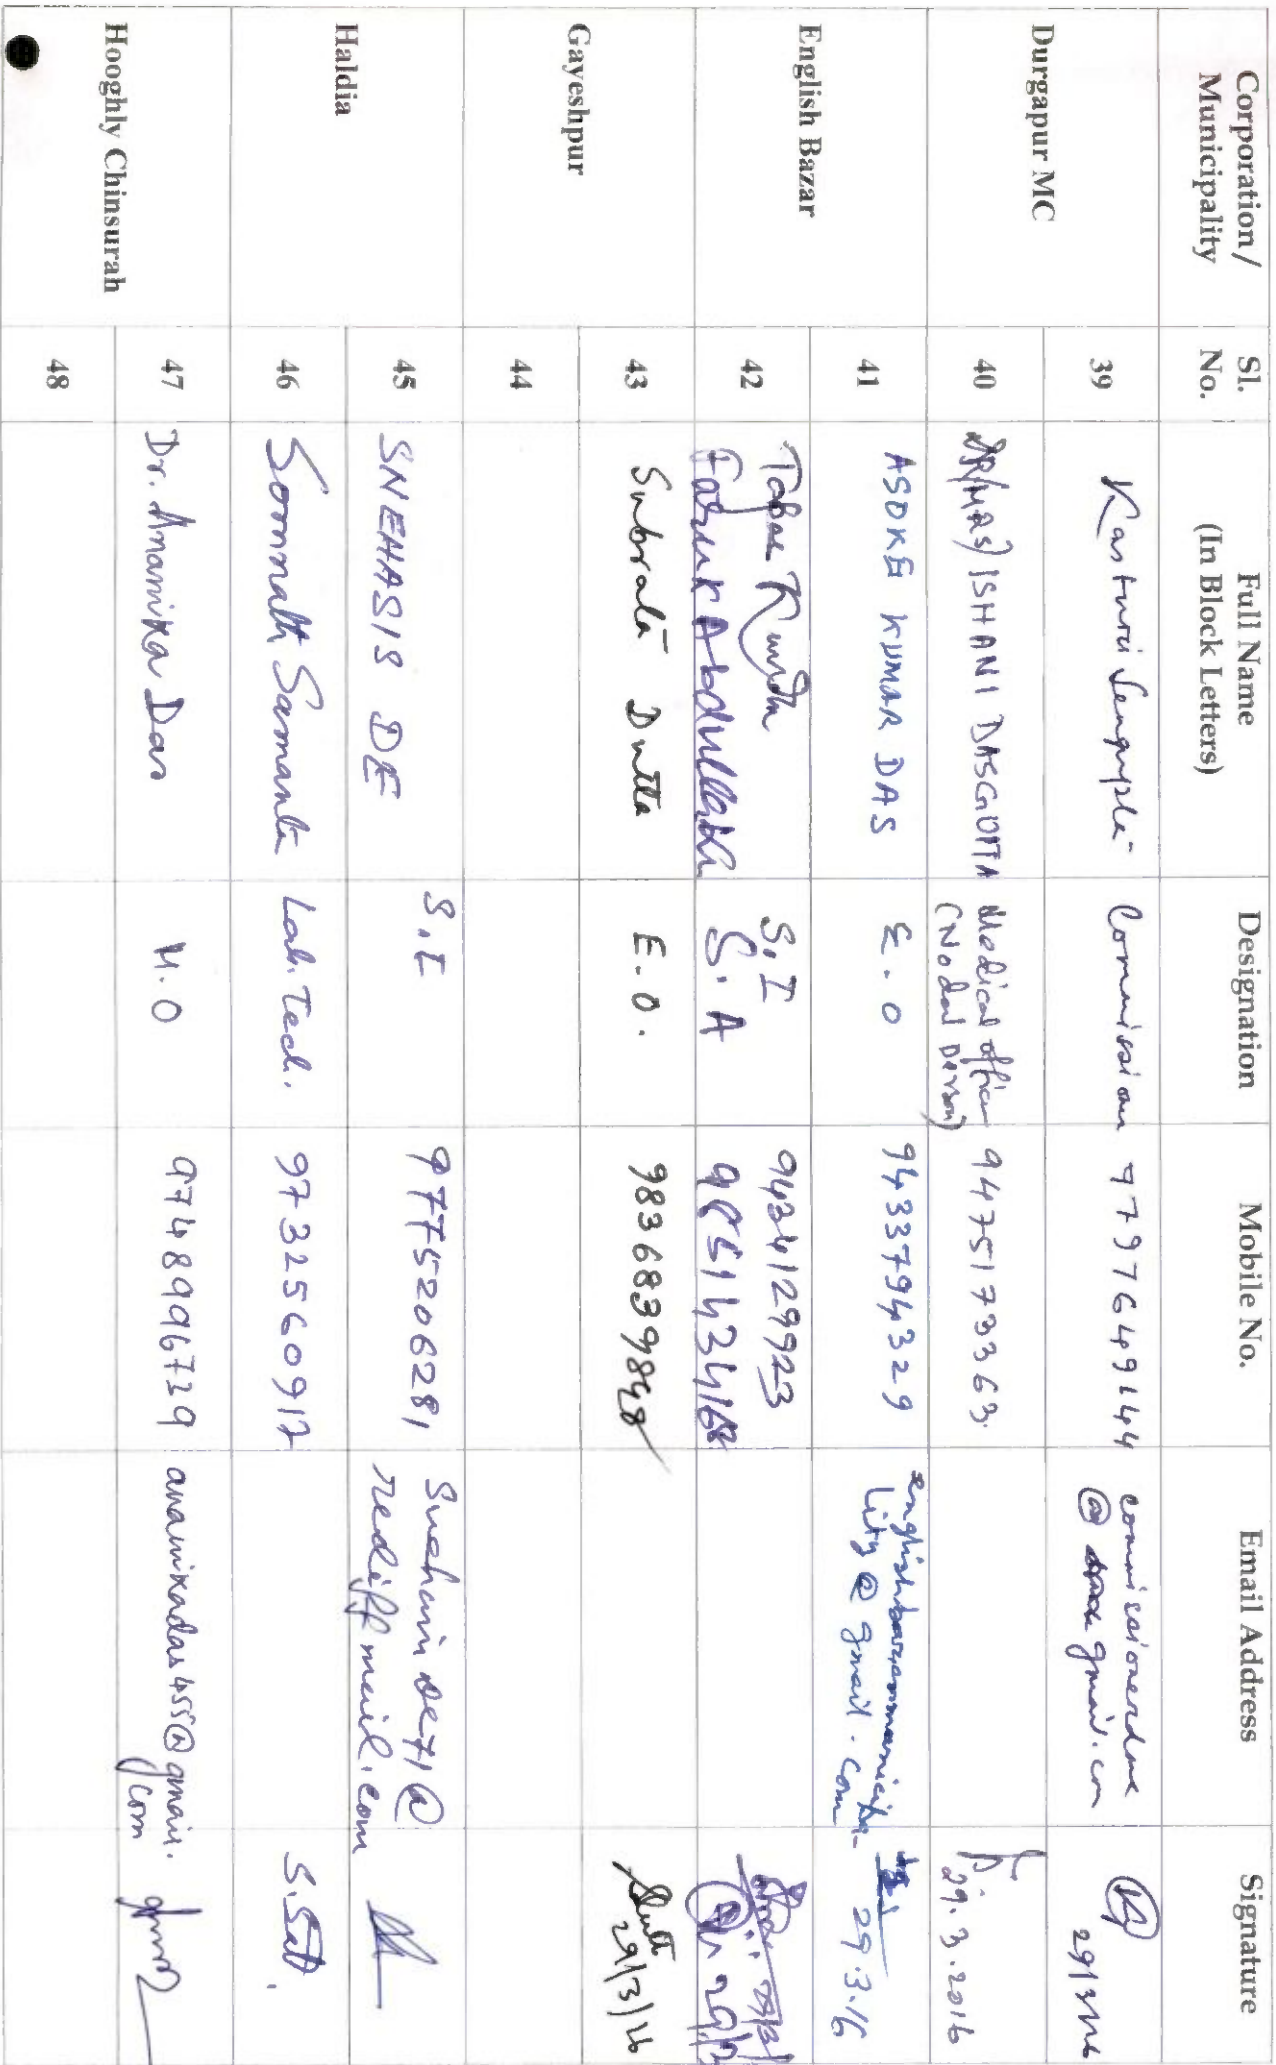 Corporation/ Municipality Sl. No. Full Name (In Block Letters) Designation Mobile No. Email Address Signature
Durgapur MC
39 Kasturi Sengupta Commissioner 9797649144 commissionerdmc @ gmail.com 29/3/2016
40 DR(MRS) ISHANI DASGUPTA Medical officer (Nodal Person) 9475173363. 29.3.2016
English Bazar
41 ASOKE KUMAR DAS E.O 9433794329 englishbazarmunicipa-lity@gmail.com 29.3.16
42 Tapas Kundu S.I 9434129923
Faruk Abdullah S.A
Gayeshpur
43 Subrata Dutta E.O. 9836839848 29/3/16
44
Haldia
45 SNEHASIS DE S.I 9775206281 rediffmail.com
46 Somnath Samanta Lab. Tech. 9732560917
Hooghly Chinsurah
47 Dr. Anamika Das H.O 9748996729 anamikadas455@gmail.com
48